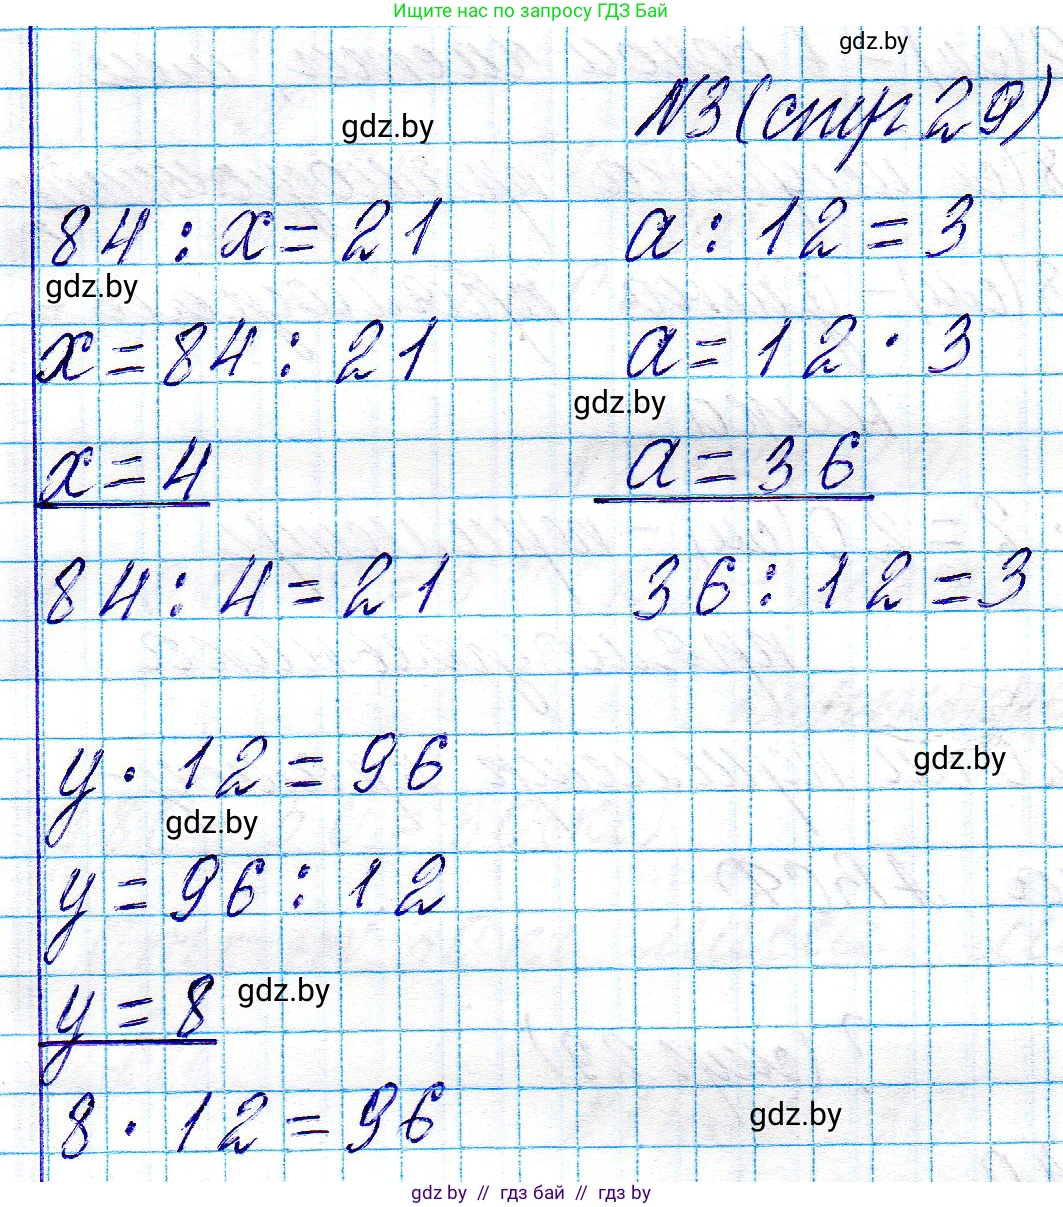 Ищите нас по запросу ГДЗ Бай
gdz.by
№3 (стр 29)
gdz.by
84 : x = 21
a : 12 = 3
gdz.by
x = 84 : 21
a = 12 · 3
gdz.by
x = 4
a = 36
84 : 4 = 21
36 : 12 = 3
y · 12 = 96
gdz.by
gdz.by
y = 96 : 12
y = 8
gdz.by
8 · 12 = 96
gdz.by
gdz by // гдз бай // гдз by